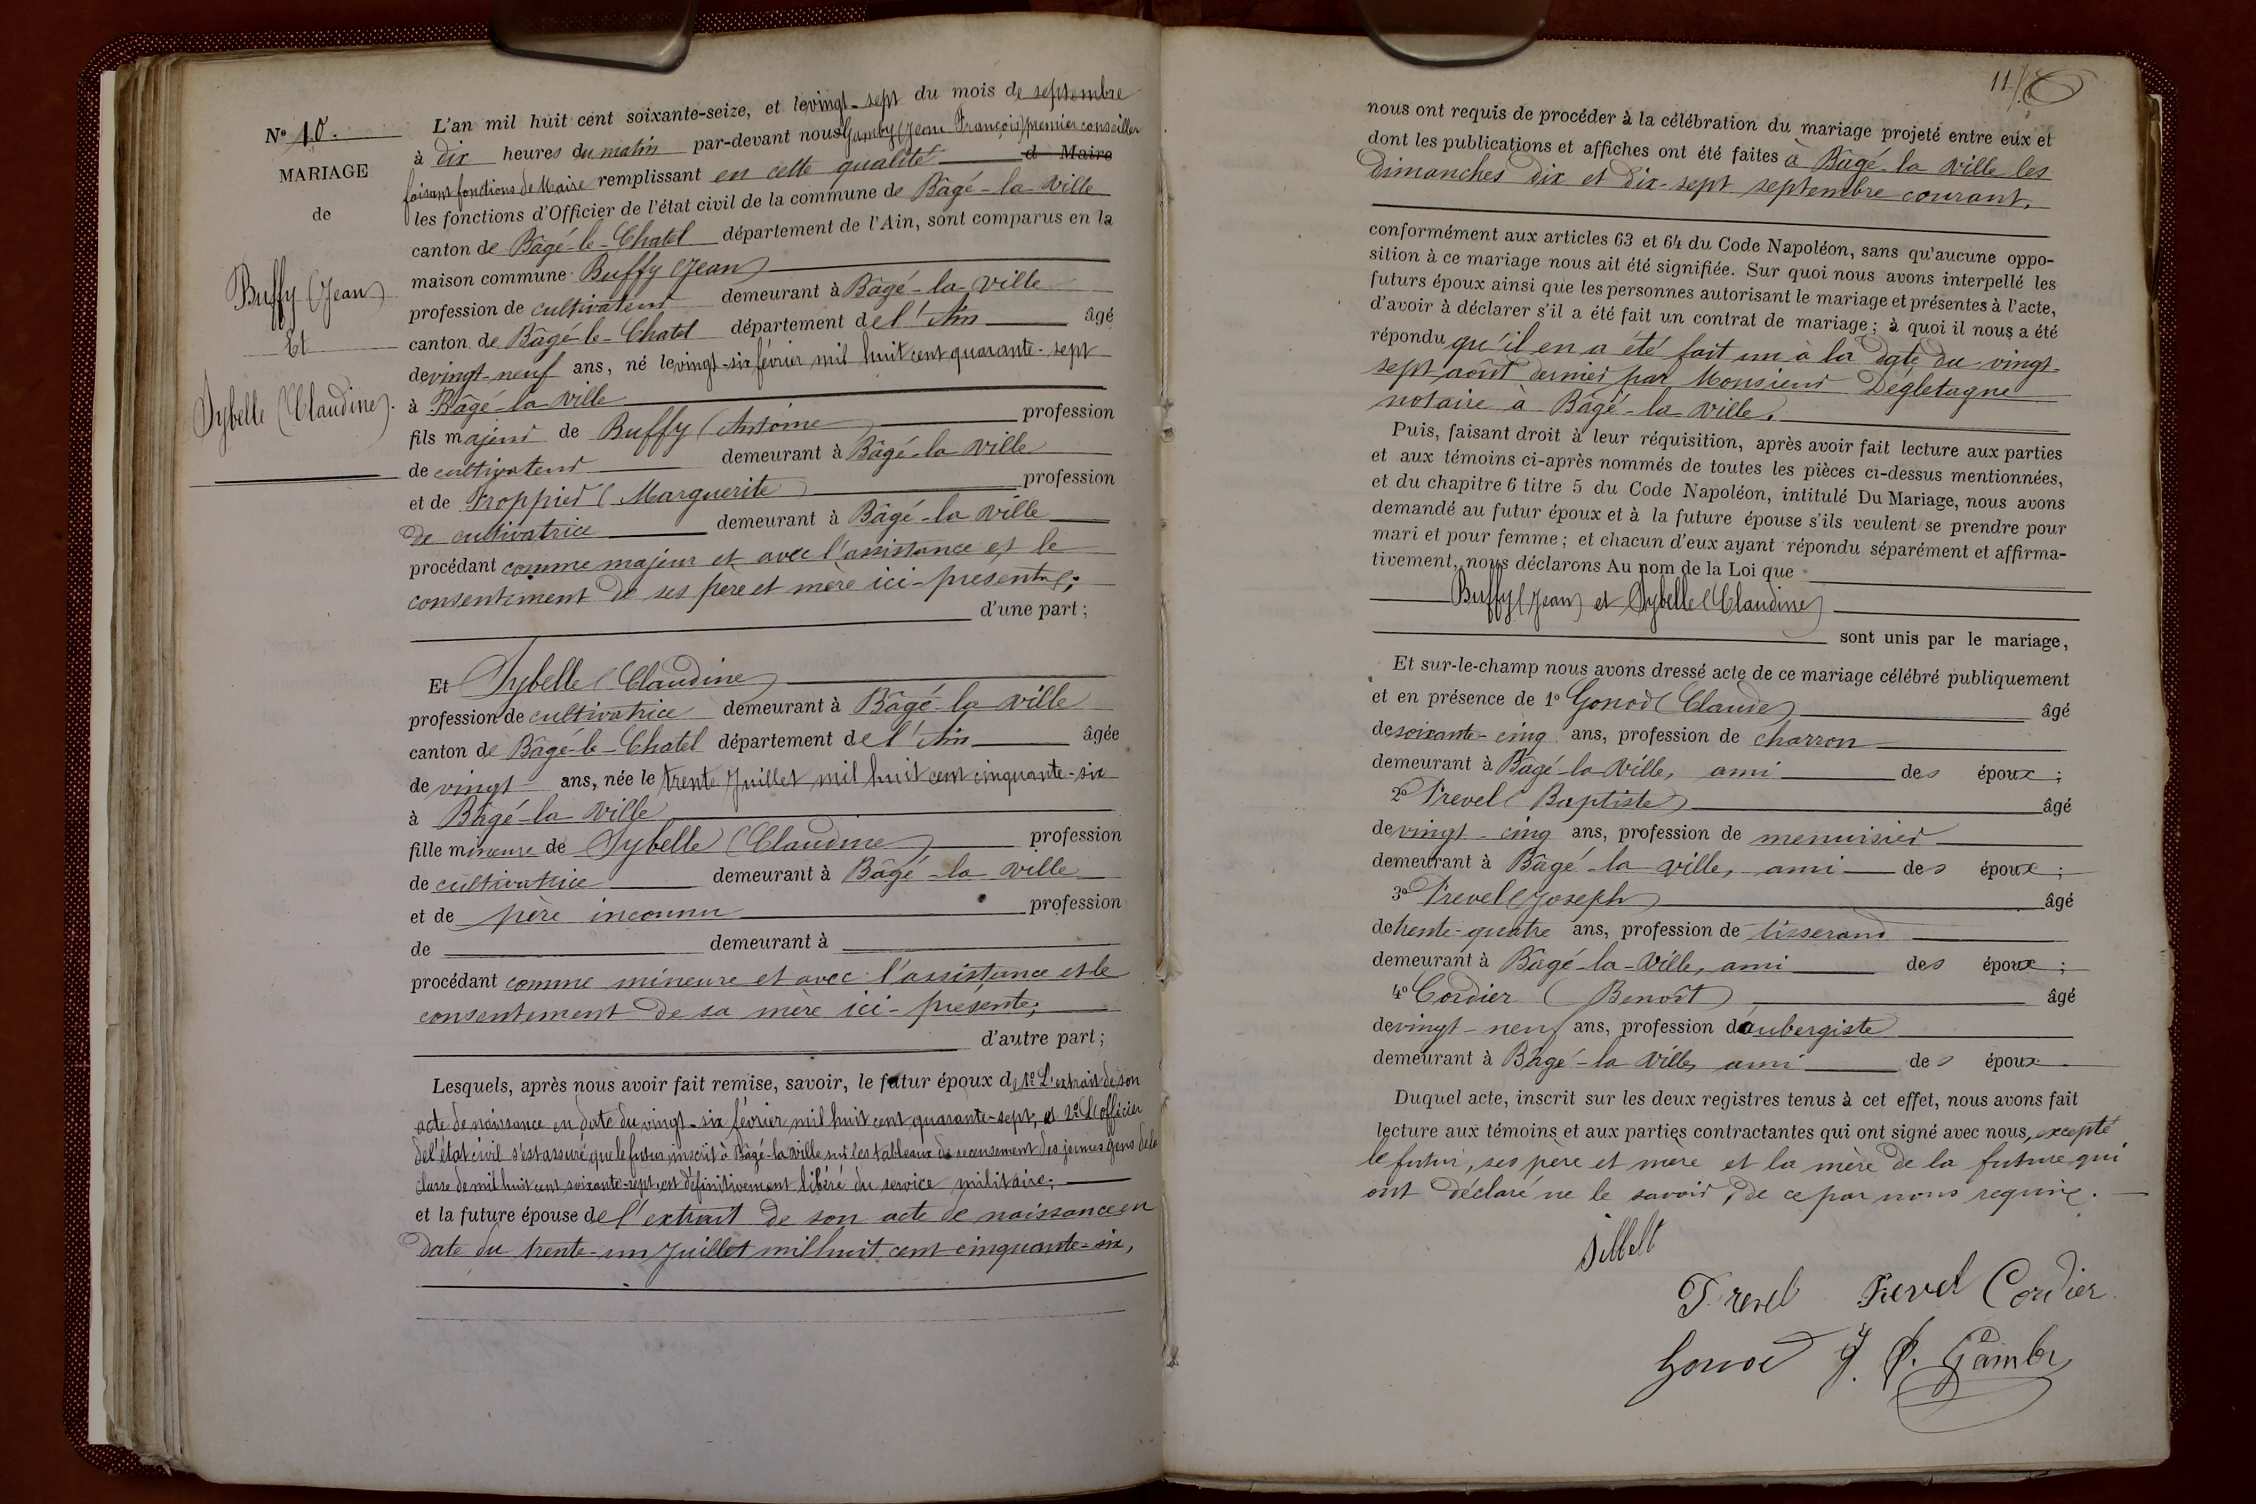 Nº 10.
MARIAGE
de
Buffy (Jean)
Et
Sybelle (Claudine).
L'an mil huit cent soixante-seize, et le vingt-sept du mois de septembre
à dix heures du matin par-devant nous Gamby (Jean François) premier conseiller
faisant fonctions de Maire remplissant en cette qualité d Maire
les fonctions d'Officier de l'état civil de la commune de Bâgé-la-Ville
canton de Bâgé-le-Chatel département de l'Ain, sont comparus en la
maison commune Buffy (Jean)
profession de cultivateur demeurant à Bâgé-la-Ville
canton de Bâgé-le-Chatel département de l'Ain âgé
de vingt-neuf ans, né le vingt-six février mil huit cent quarante-sept
à Bâgé-la-Ville
fils majeur de Buffy (Antoine) profession
de cultivateur demeurant à Bâgé-la-Ville
et de Froppier (Marguerite) profession
de cultivatrice demeurant à Bâgé-la-Ville
procédant comme majeur et avec l'assistance et le
consentement de ses père et mère ici-présents;
d'une part;
Et Sybelle (Claudine)
profession de cultivatrice demeurant à Bâgé-la-Ville
canton de Bâgé-le-Chatel département de l'Ain âgée
de vingt ans, née le trente Juillet mil huit cent cinquante-six
à Bâgé-la-Ville
fille mineure de Sybelle (Claudine) profession
de cultivatrice demeurant à Bâgé-la-Ville
et de père inconnu profession
de demeurant à
procédant comme mineure et avec l'assistance et le
consentement de sa mère ici-présente;
d'autre part;
Lesquels, après nous avoir fait remise, savoir, le futur époux de 1º L'extrait de son
acte de naissance en date du vingt-six février mil huit cent quarante-sept, et 2º L'officier
de l'état civil s'est assuré que le futur, inscrit à Bâgé-la-Ville sur les tableaux de recensement des jeunes gens de la
classe de mil huit cent soixante-sept, est définitivement libéré du service militaire;
et la future épouse de l'extrait de son acte de naissance en
date du trente-un Juillet mil huit cent cinquante-six,
11
nous ont requis de procéder à la célébration du mariage projeté entre eux et
dont les publications et affiches ont été faites à Bâgé-la-Ville les
Dimanches dix et dix-sept septembre courant,
conformément aux articles 63 et 64 du Code Napoléon, sans qu'aucune oppo-
sition à ce mariage nous ait été signifiée. Sur quoi nous avons interpellé les
futurs époux ainsi que les personnes autorisant le mariage et présentes à l'acte,
d'avoir à déclarer s'il a été fait un contrat de mariage; à quoi il nous a été
répondu qu'il en a été fait un à la date du vingt-
sept août dernier par Monsieur Degletagne
notaire à Bâgé-la-Ville.
Puis, faisant droit à leur réquisition, après avoir fait lecture aux parties
et aux témoins ci-après nommés de toutes les pièces ci-dessus mentionnées,
et du chapitre 6 titre 5 du Code Napoléon, intitulé Du Mariage, nous avons
demandé au futur époux et à la future épouse s'ils veulent se prendre pour
mari et pour femme; et chacun d'eux ayant répondu séparément et affirma-
tivement, nous déclarons Au nom de la Loi que
Buffy (Jean) et Sybelle (Claudine)
sont unis par le mariage,
Et sur-le-champ nous avons dressé acte de ce mariage célébré publiquement
et en présence de 1º Gonod (Claude) âgé
de soixante-cinq ans, profession de charron
demeurant à Bâgé-la-Ville, ami des époux;
2º Frevel (Baptiste) âgé
de vingt-cinq ans, profession de menuisier
demeurant à Bâgé-la-Ville, ami des époux;
3º Frevel (Joseph) âgé
de trente-quatre ans, profession de tisserand
demeurant à Bâgé-la-Ville, ami des époux;
4º Cordier (Benoît) âgé
de vingt-neuf ans, profession d'aubergiste
demeurant à Bâgé-la-Ville, ami des époux
Duquel acte, inscrit sur les deux registres tenus à cet effet, nous avons fait
lecture aux témoins et aux parties contractantes qui ont signé avec nous, excepté
le futur, ses père et mère et la mère de la future qui
ont déclaré ne le savoir, de ce par nous requis.
Sibelle
Frevel Frevel Cordier
Gonod J. F. Gamby